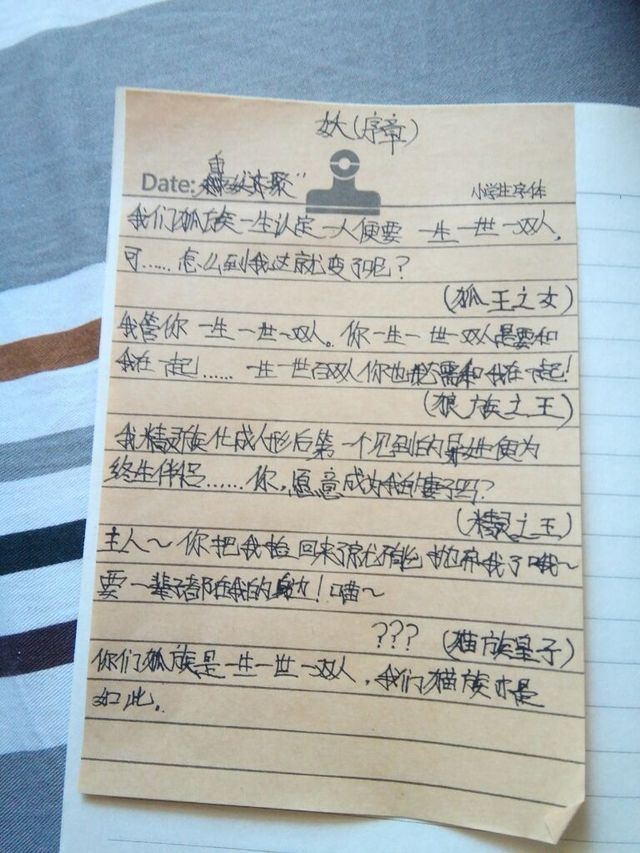 妖(序章)
Date:
小学生字体
我们狐族一生认定一人便要一生一世一双人,
可……怎么到我这就变了呢?
(狐王之女)
我管你一生一世一双人。你一生一世一双人是要和
我在一起!……一生一世百双人你也必需和我在一起!
(狼族之王)
我精灵族化成人形后第一个见到的异姓便为
终生伴侣……你,愿意成为我的妻子吗?
(精灵之王)
主人~你把我捡回来了就不能抛弃我了哦~
要一辈子都陪在我的身边!喵~
??? (猫族皇子)
你们狐族是一生一世一双人,我们猫族亦是
如此。